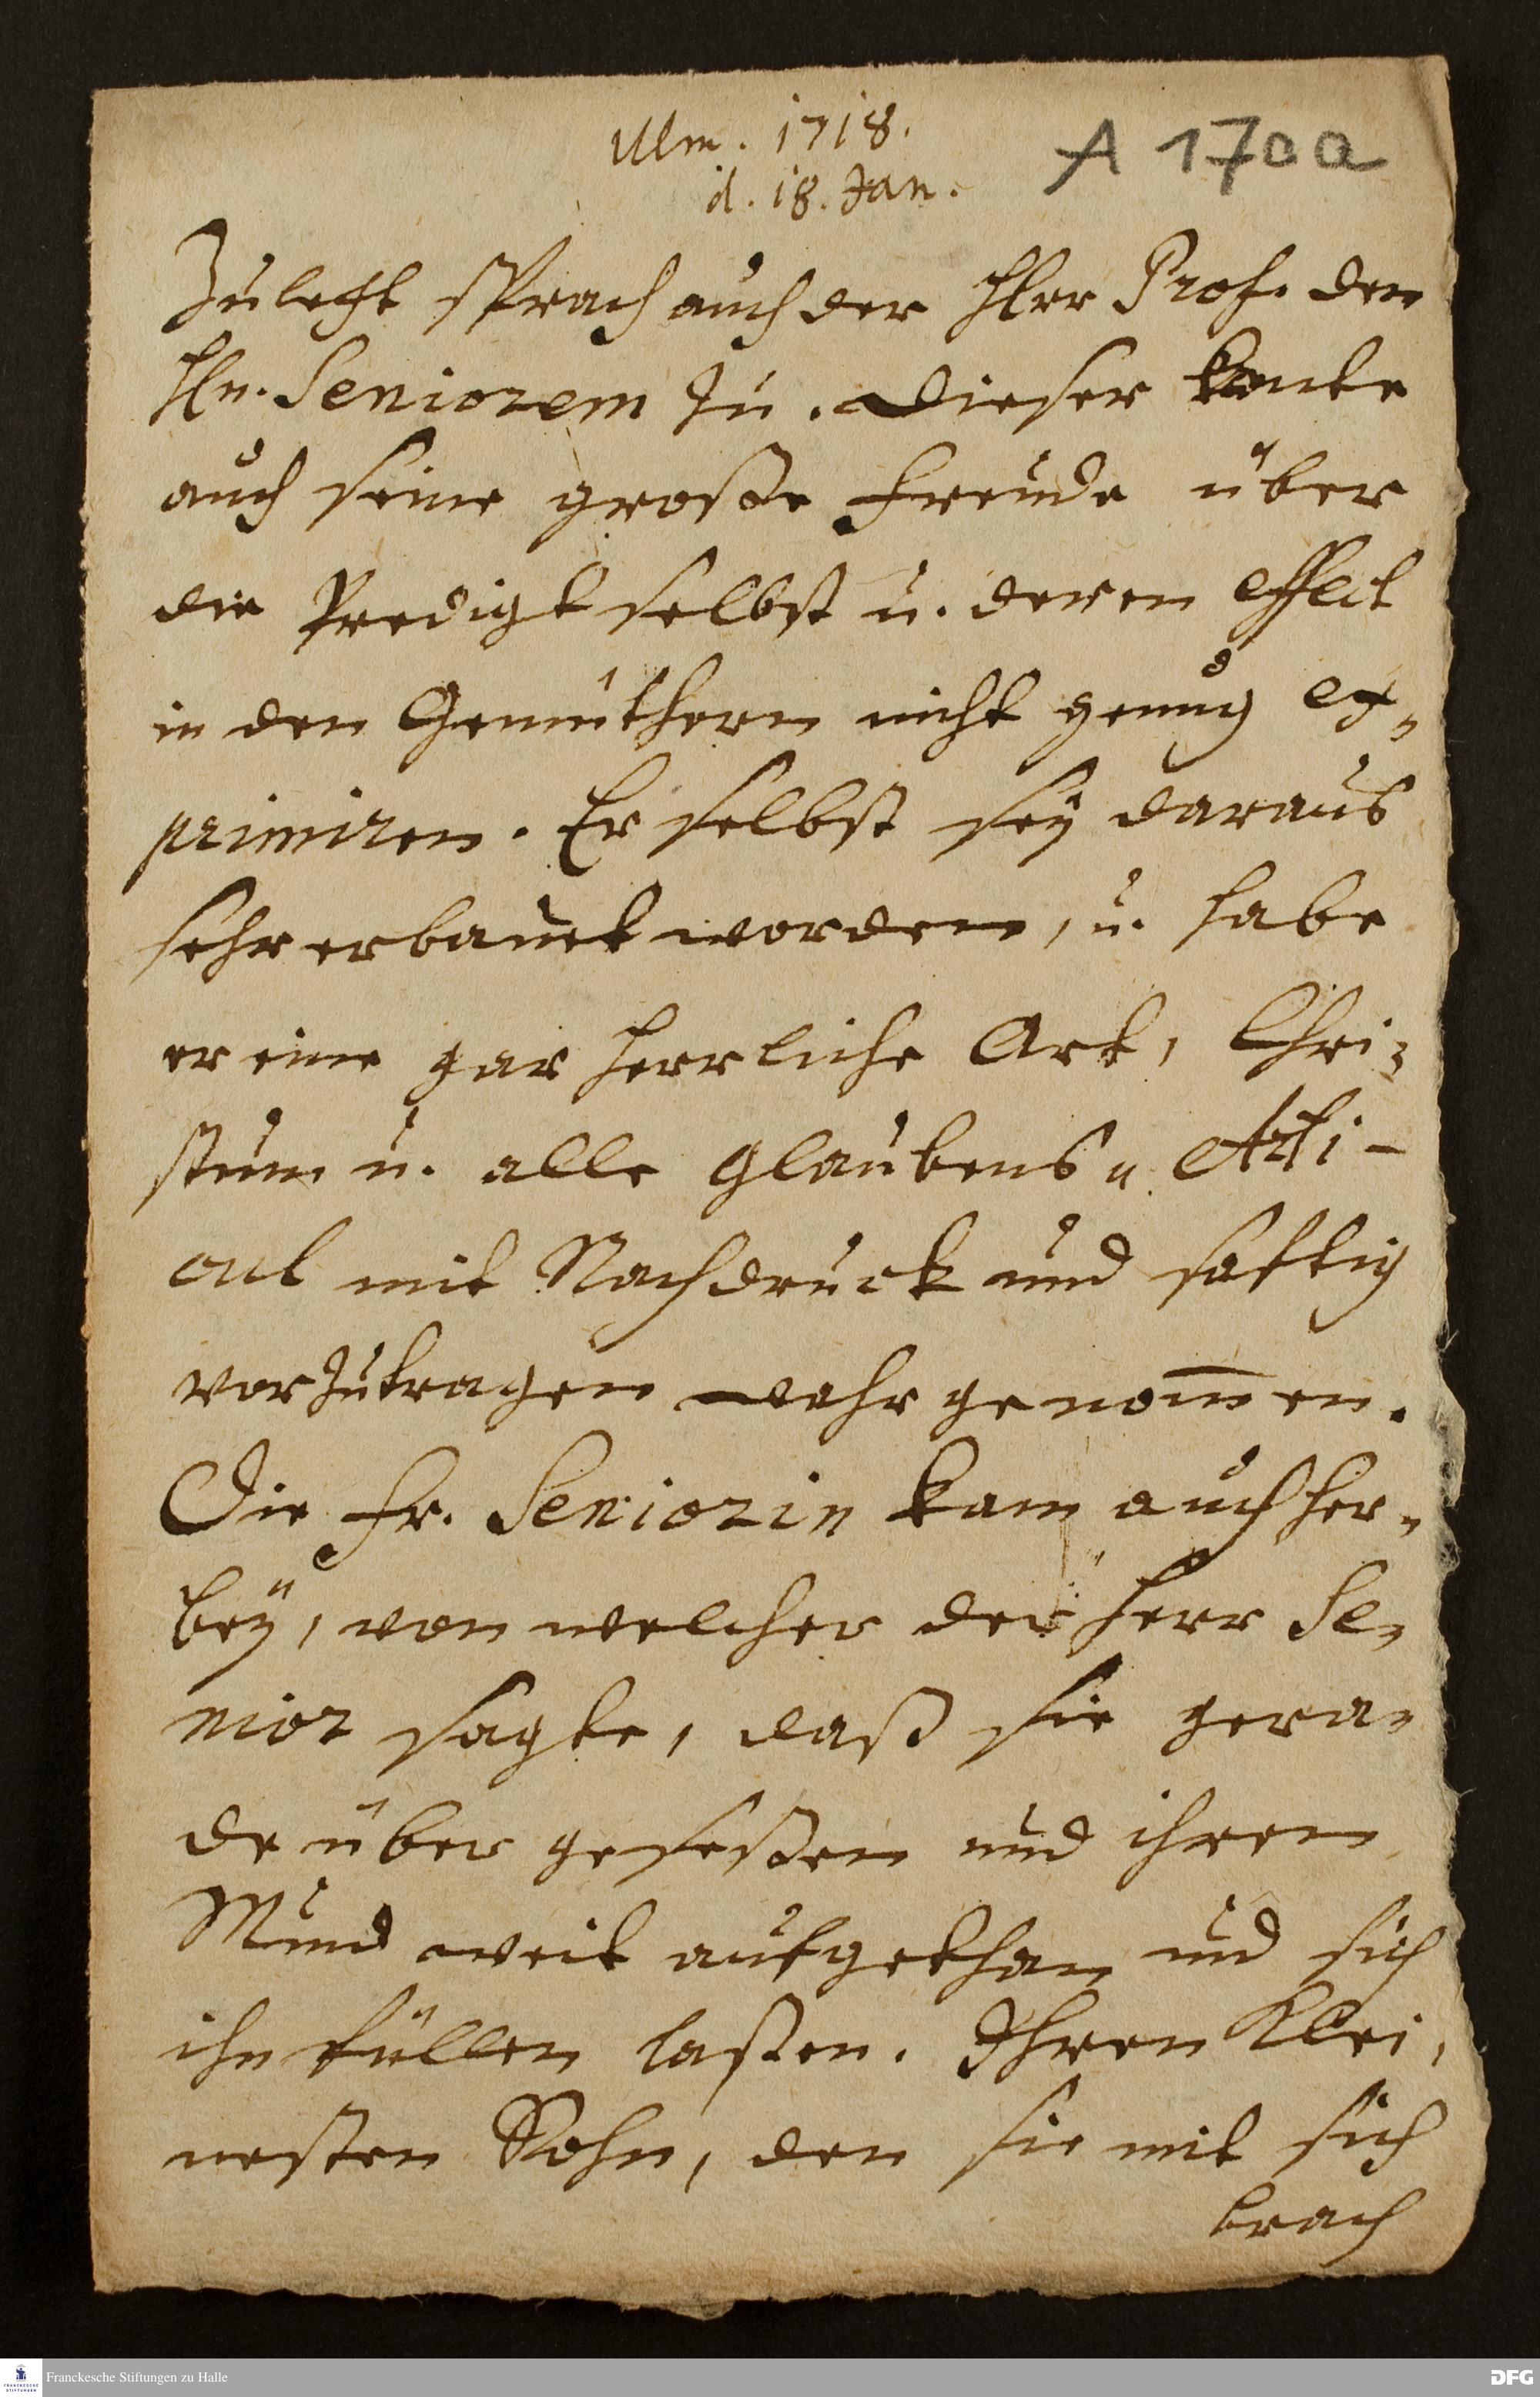 Ulm. 1718.
d. 18. Jan.
A 170 a
Zuletzt sprach auch der Herr Prof. dem
Hn. Seniorem zu. Dieser konte
auch seine große Freude über
die Predigt selbst u. deren effect
in den Gemüthern nicht genug ex-
primiren. Er selbst sey daraus
sehr erbauet worden, u. habe
er eine gar herrliche Art, Chri-
stum u. alle Glaubens-Arti-
cul mit Nachdruck und safftig
vorzutragen wahrgenom̄en.
Die Fr. Seniorin kam auch her-
bey, von welcher der Herr Se-
nior sagte, daß sie gera-
de über geseßen und ihren
Mund weit aufgethan und sich
ihn füllen laßen. Ihren klei-
nesten Sohn, den sie mit sich
brach
Franckesche Stiftungen zu Halle
DFG